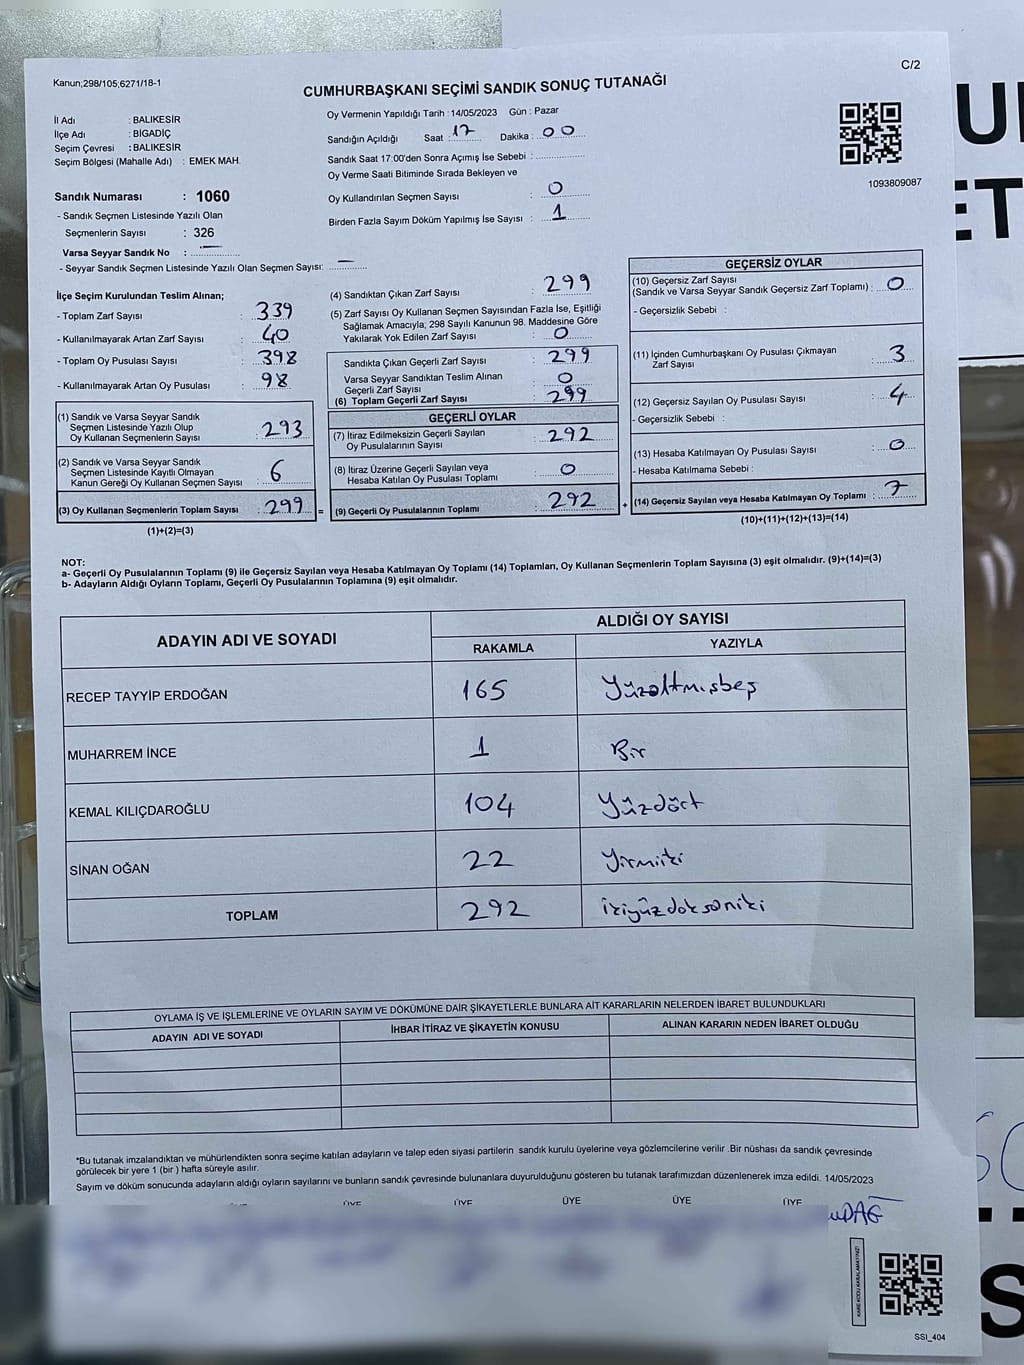 Kanun;298/105;6271/18-1
C/2
CUMHURBAŞKANI SEÇİMİ SANDIK SONUÇ TUTANAĞI
İl Adı : BALIKESİR
İlçe Adı : BİGADİÇ
Seçim Çevresi : BALIKESİR
Seçim Bölgesi (Mahalle Adı) : EMEK MAH.
Sandık Numarası : 1060
- Sandık Seçmen Listesinde Yazılı Olan
Seçmenlerin Sayısı : 326
Varsa Seyyar Sandık No :
- Seyyar Sandık Seçmen Listesinde Yazılı Olan Seçmen Sayısı:
Oy Vermenin Yapıldığı Tarih : 14/05/2023 Gün : Pazar
Sandığın Açıldığı Saat 17 Dakika : 00
Sandık Saat 17:00'den Sonra Açımış İse Sebebi :
Oy Verme Saati Bitiminde Sırada Bekleyen ve
Oy Kullandırılan Seçmen Sayısı : 0
Birden Fazla Sayım Döküm Yapılmış İse Sayısı : 1
1093809087
İlçe Seçim Kurulundan Teslim Alınan;
- Toplam Zarf Sayısı : 339
- Kullanılmayarak Artan Zarf Sayısı : 40
- Toplam Oy Pusulası Sayısı : 398
- Kullanılmayarak Artan Oy Pusulası : 98
(1) Sandık ve Varsa Seyyar Sandık
Seçmen Listesinde Yazılı Olup
Oy Kullanan Seçmenlerin Sayısı : 293
(2) Sandık ve Varsa Seyyar Sandık
Seçmen Listesinde Kayıtlı Olmayan
Kanun Gereği Oy Kullanan Seçmen Sayısı : 6
(3) Oy Kullanan Seçmenlerin Toplam Sayısı : 299 =
(1)+(2)=(3)
(4) Sandıktan Çıkan Zarf Sayısı : 299
(5) Zarf Sayısı Oy Kullanan Seçmen Sayısından Fazla İse, Eşitliği
Sağlamak Amacıyla; 298 Sayılı Kanunun 98. Maddesine Göre
Yakılarak Yok Edilen Zarf Sayısı : 0
Sandıkta Çıkan Geçerli Zarf Sayısı : 299
Varsa Seyyar Sandıktan Teslim Alınan
Geçerli Zarf Sayısı : 0
(6) Toplam Geçerli Zarf Sayısı : 299
GEÇERLİ OYLAR
(7) İtiraz Edilmeksizin Geçerli Sayılan
Oy Pusulalarının Sayısı : 292
(8) İtiraz Üzerine Geçerli Sayılan veya
Hesaba Katılan Oy Pusulası Toplamı : 0
(9) Geçerli Oy Pusulalarının Toplamı : 292 +
GEÇERSİZ OYLAR
(10) Geçersiz Zarf Sayısı
(Sandık ve Varsa Seyyar Sandık Geçersiz Zarf Toplamı) : 0
- Geçersizlik Sebebi :
(11) İçinden Cumhurbaşkanı Oy Pusulası Çıkmayan
Zarf Sayısı : 3
(12) Geçersiz Sayılan Oy Pusulası Sayısı : 4
- Geçersizlik Sebebi :
(13) Hesaba Katılmayan Oy Pusulası Sayısı : 0
- Hesaba Katılmama Sebebi :
(14) Geçersiz Sayılan veya Hesaba Katılmayan Oy Toplamı : 7
(10)+(11)+(12)+(13)=(14)
NOT:
a- Geçerli Oy Pusulalarının Toplamı (9) ile Geçersiz Sayılan veya Hesaba Katılmayan Oy Toplamı (14) Toplamları, Oy Kullanan Seçmenlerin Toplam Sayısına (3) eşit olmalıdır. (9)+(14)=(3)
b- Adayların Aldığı Oyların Toplamı, Geçerli Oy Pusulalarının Toplamına (9) eşit olmalıdır.
ADAYIN ADI VE SOYADI ALDIĞI OY SAYISI
RAKAMLA YAZIYLA
RECEP TAYYİP ERDOĞAN 165 Yüzaltmışbeş
MUHARREM İNCE 1 Bir
KEMAL KILIÇDAROĞLU 104 Yüzdört
SİNAN OĞAN 22 Yirmiiki
TOPLAM 292 ikiyüzdoksaniki
OYLAMA İŞ VE İŞLEMLERİNE VE OYLARIN SAYIM VE DÖKÜMÜNE DAİR ŞİKAYETLERLE BUNLARA AİT KARARLARIN NELERDEN İBARET BULUNDUKLARI
ADAYIN ADI VE SOYADI İHBAR İTİRAZ VE ŞİKAYETİN KONUSU ALINAN KARARIN NEDEN İBARET OLDUĞU
*Bu tutanak imzalandıktan ve mühürlendikten sonra seçime katılan adayların ve talep eden siyasi partilerin sandık kurulu üyelerine veya gözlemcilerine verilir .Bir nüshası da sandık çevresinde
görülecek bir yere 1 (bir ) hafta süreyle asılır.
Sayım ve döküm sonucunda adayların aldığı oyların sayılarını ve bunların sandık çevresinde bulunanlara duyurulduğunu gösteren bu tutanak tarafımızdan düzenlenerek imza edildi. 14/05/2023
ÜYE ÜYE ÜYE ÜYE ÜYE ÜYE
SSI_404